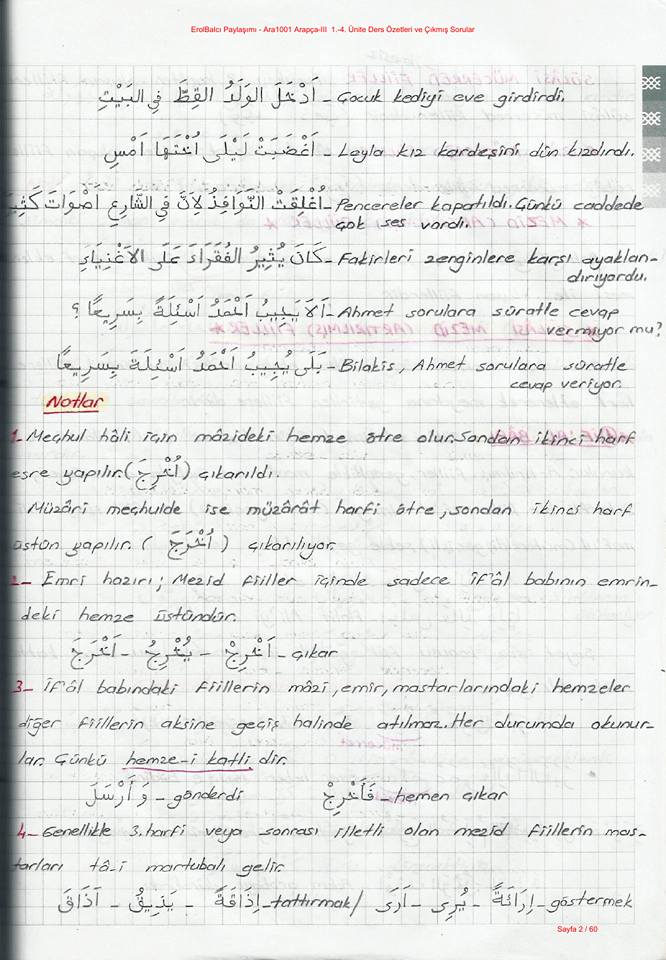 ErolBalcı Paylaşımı - Ara1001 Arapça-III 1.-4. Ünite Ders Özetleri ve Çıkmış Sorular
اَدْخَلَ الوَلَدُ القِطَّ فِي البَيْتِ - Çocuk kediyi eve girdirdi.
اَغْضَبَتْ لَيْلَى اُخْتَهَا اَمْسِ - Leyla kız kardeşini dün kızdırdı.
اُغْلِقَتْ النَّوَافِذُ لِاَنَّ فِي الشَّارِعِ اَصْوَاتَ - Pencereler kapatıldı. Çünkü caddede
çok ses vardı.
كَانَ يُثِيرُ الفُقَرَاءَ عَلَى الاَغْنِيَاءِ - Fakirleri zenginlere karşı ayaklan-
dırıyordu.
اَلَا يُجِيبُ اَحْمَدُ اَسْئِلَةً بِسَرِيعًا ؟ - Ahmet sorulara süratle cevap
vermiyor mu?
بَلَى يُجِيبُ اَحْمَدُ اَسْئِلَةً بِسَرِيعًا - Bilakis, Ahmet sorulara süratle
cevap veriyor.
Notlar
1- Meçhul hâli için mâzideki hemze ötre olur. Sondan ikinci harf
esre yapılır. (اُخْرِجَ) çıkarıldı.
Müzâri meçhulde ise müzârât harfi ötre, sondan ikinci harf
üstün yapılır. (اُخْرَجَ) çıkarılıyor.
2- Emri hazırı; Mezid fiiller içinde sadece if'âl babının emrin-
deki hemze üstündür.
اَخْرَجَ - يُخْرِجُ - اَخْرِجْ - çıkar
3- İf'âl babındaki fiillerin mâzi, emir, mastarlarındaki hemzeler
diğer fiillerin aksine geçiş halinde atılmaz. Her durumda okunur-
lar. Çünkü hemze-i katli dir.
وَأَرْسَلَ - gönderdi فَأَخْرِجْ - hemen çıkar
4- Genellikle 3. harfi veya sonrası illetli olan mezid fiillerin mas-
tarları tâ-i martubalı gelir.
اَذَاقَ - يَذِيقُ - اِذَاقَةً - tattırmak / اَرَى - يُرِى - اِرَائَةً - göstermek
Sayfa 2 / 60